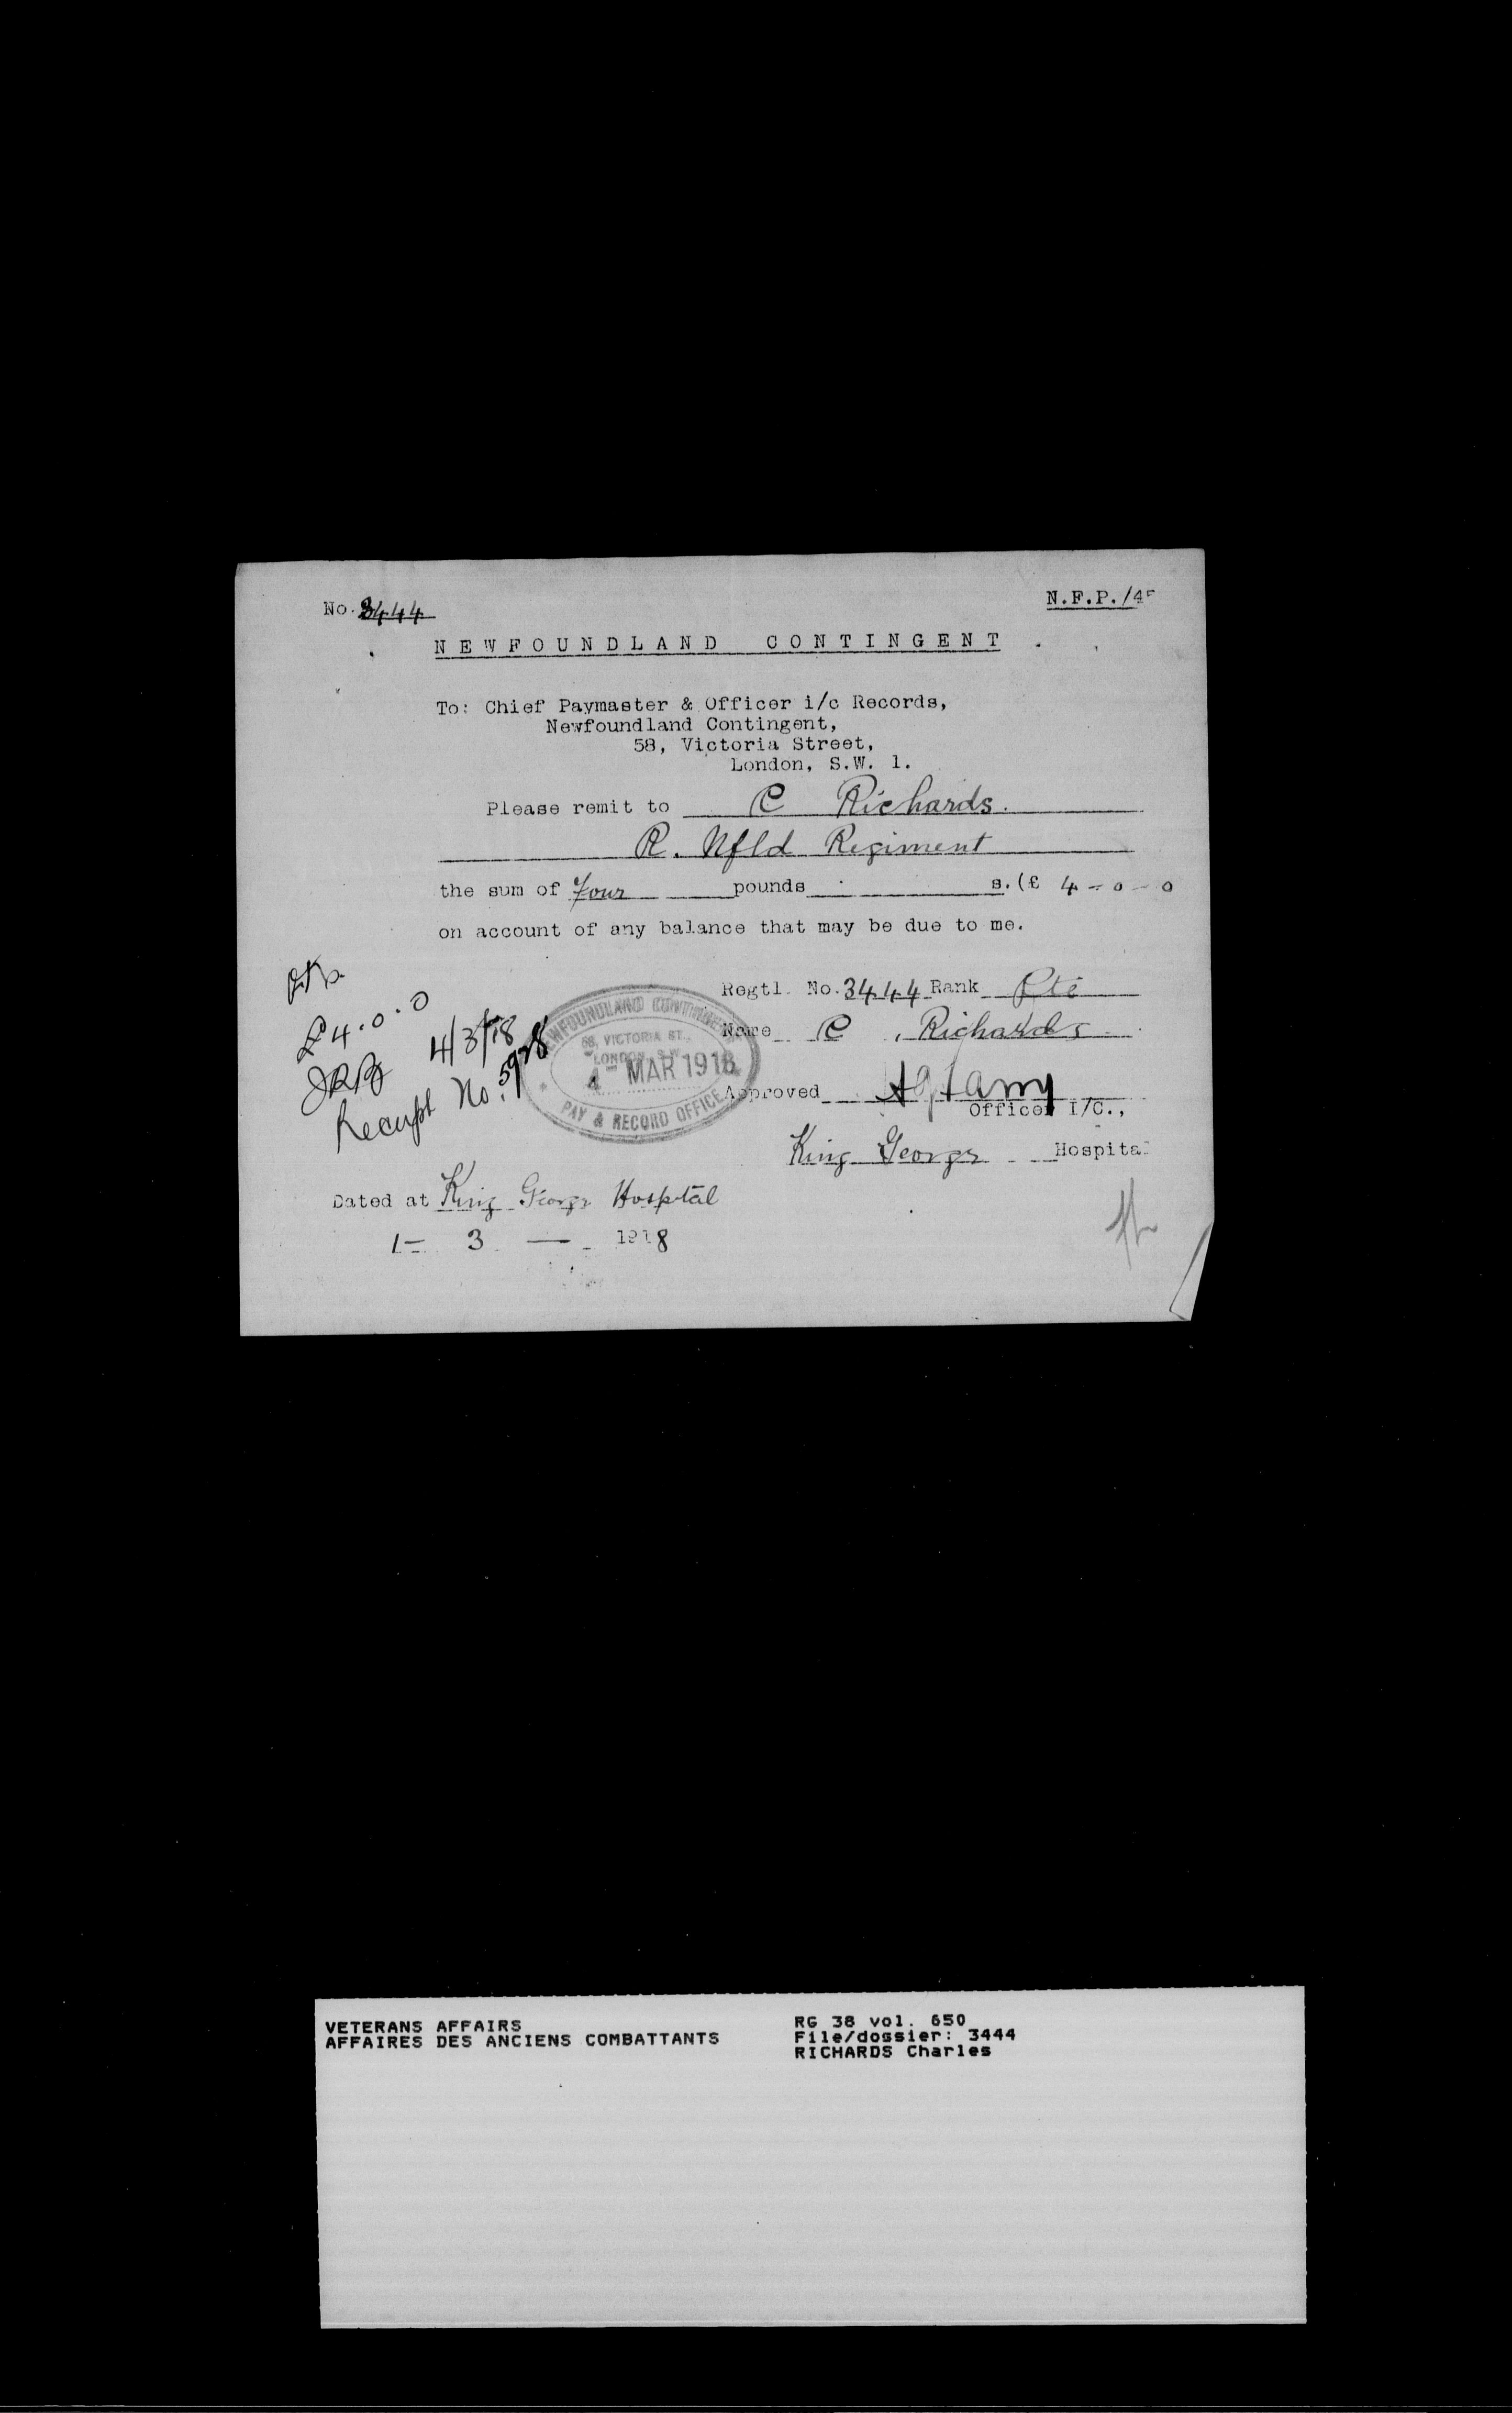 No. 3444
N.F.P./45
NEWFOUNDLAND CONTINGENT
To: Chief Paymaster & Officer i/c Records,
Newfoundland Contingent,
58, Victoria Street,
London, S.W. 1.
Please remit to C Richards.
R. Nfld Regiment
the sum of Four pounds s. (£ 4-0-0
on account of any balance that may be due to me.
Regtl. No. 3444 Rank Pte
Name C, Richards
Approved
Officer I/C.,
King George Hospital
£4.0.0
4/3/18
Receipt No. 5928
NEWFOUNDLAND CONTINGENT
58, VICTORIA ST.,
LONDON, S.W.
4 MAR 1918
PAY & RECORD OFFICE
Dated at King George Hospital
1- 3 - 1918
VETERANS AFFAIRS
AFFAIRES DES ANCIENS COMBATTANTS
RG 38 vol. 650
File/dossier: 3444
RICHARDS Charles